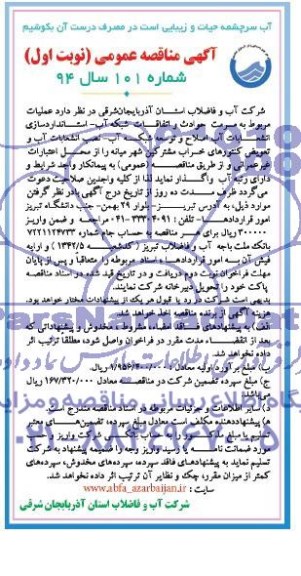 آب سرچشمه حیات و زیبایی است در مصرف درست آن بکوشیم
آگهی مناقصه عمومی (نوبت اول)
شماره ۱۰۱ سال ۹۴
شرکت آب و فاضلاب استان آذربایجان‌شرقی در نظر دارد عملیات
مربوط به سرعت حوادث و اتفاقات شبکه آب- استانداردسازی
انشعابات آب و اصلاح و توسعه شبکه آب- نصب انشعابات آب و
تعویض کنتورهای خراب مشترکین شهر میانه را از محل اعتبارات
غیرعمرانی و از طریق مناقصه (عمومی) به پیمانکار واجد شرایط و
دارای رتبه آب واگذار نماید لذا از کلیه واجدین صلاحیت دعوت
می‌گردد ظرف مدت ده روز از تاریخ درج آگهی با در نظر گرفتن
موارد ذیل، به آدرس تبریز- بلوار ۲۹ بهمن- جنب دانشگاه تبریز
امور قراردادها- تلفن: ۳۳۳۰۴۰۹۱-۰۴۱ مراجعه و ضمن واریز
۳۰۰۰۰۰ ریال برای هر مناقصه به حساب جام شماره ۷۲۲۱۱۲۴۷۳۳
بانک ملت باجه آب و فاضلاب تبریز (کد شعبه ۱۳۴۲/۵) و ارایه
فیش آن به امور قراردادها، اسناد مربوطه را متعاقباً و پس از پایان
مهلت فراخوان نوبت دوم دریافت و در تاریخ قید شده در اسناد مناقصه
پاکت خود را تحویل دبیرخانه شرکت نمایند.
بدیهی است شرکت در رد یا قبول هر یک از پیشنهادات مختار خواهد بود.
هزینه آگهی از برنده مناقصه اخذ خواهد شد.
الف) به پیشنهادهای فاقد امضاء، مشروط، مخدوش و پیشنهاداتی که
بعد از انقضاء مدت مقرر در فراخوان واصل شود، مطلقا ترتیب اثر
داده نخواهد شد.
ب) مبلغ برآورد اولیه معادل ریال
ج) مبلغ سپرده تضمین شرکت در مناقصه معادل ۱۶۷/۳۲۰/۰۰۰ ریال
د) سایر اطلاعات و جزئیات مربوطه در اسناد مناقصه مندرج است.
ه) پیشنهاددهنده مکلف است معادل مبلغ سپرده، تضمین‌های معتبر
تسلیم نماید به پیشنهادهای فاقد سپرده، سپرده‌های مخدوش، سپرده‌های
کمتر از میزان مقرر، چک و نظایر آن ترتیب اثر داده نخواهد شد.
سایت: www.abfa_azarbaijan.ir
شرکت آب و فاضلاب استان آذربایجان شرقی